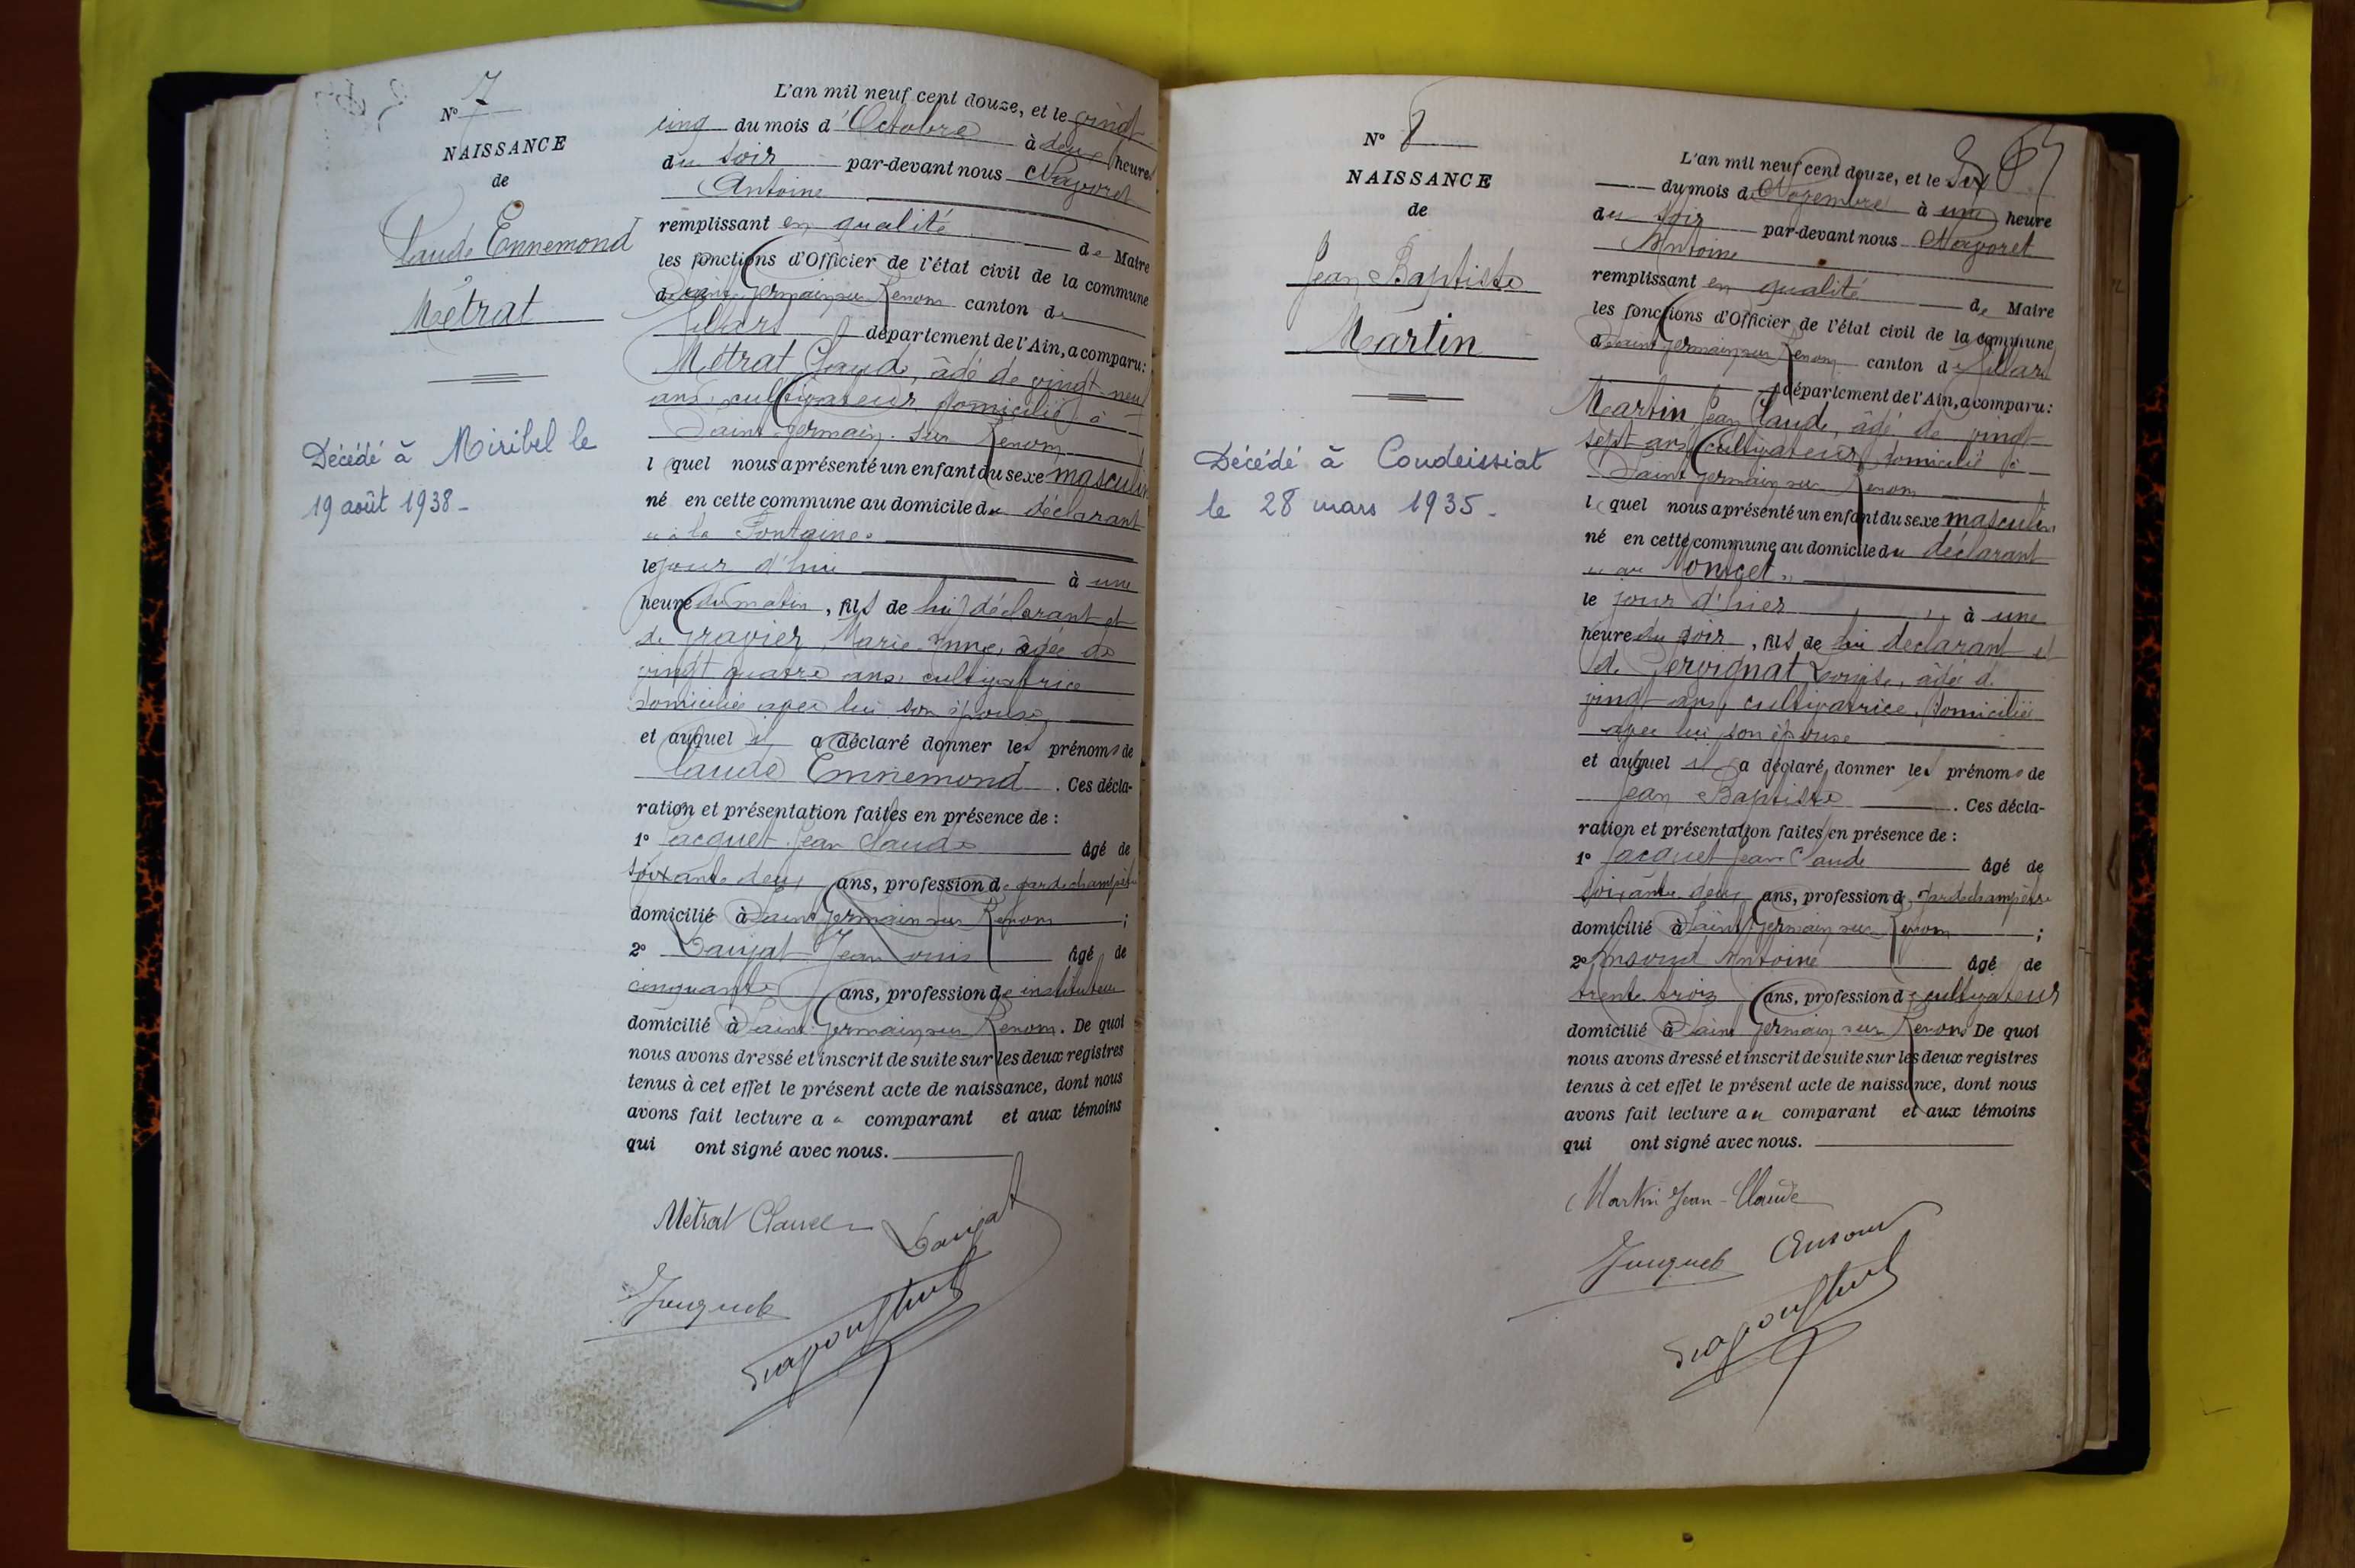 N° 7
NAISSANCE
de
Claude Ennemond
Métrat
Décédé à Miribel le
19 août 1938 -
L'an mil neuf cent douze, et le vingt
cinq du mois d'Octobre à deux heures
du soir par-devant nous
Antoine
remplissant en qualité de Maire
les fonctions d'Officier de l'état civil de la commune
de Saint Germain sur Renom canton de
Villars département de l'Ain, a comparu:
Métrat Claude, âgé de vingt-neuf
ans, cultivateur domicilié à
Saint-Germain-sur Renom
lequel nous a présenté un enfant du sexe masculin
né en cette commune au domicile du déclarant
" à la Fontaine "
le jour d'hui à une
heure du matin, fils de lui déclarant et
de Gravier, Marie Anne, âgée de
vingt quatre ans, cultivatrice
domiciliée avec lui son épouse,
et auquel il a déclaré donner les prénoms de
Claude Ennemond. Ces décla-
ration et présentation faites en présence de :
1° Jacquet Jean Claude âgé de
soixante deux ans, profession de garde champêtre
domicilié à Saint Germain sur Renom ;
2° Daujat Jean Louis âgé de
cinquante ans, profession de instituteur
domicilié à Saint Germain sur Renom. De quoi
nous avons dressé et inscrit de suite sur les deux registres
tenus à cet effet le présent acte de naissance, dont nous
avons fait lecture au comparant et aux témoins
qui ont signé avec nous.
Métrat Claude Daujat
Jacquet
N° 8
NAISSANCE
de
Jean Baptiste
Martin
Décédé à Condeissiat
le 28 mars 1935 -
L'an mil neuf cent douze, et le Six
du mois de Novembre à une heure
du soir par-devant nous
Antoine
remplissant en qualité de Maire
les fonctions d'Officier de l'état civil de la commune
de Saint Germain sur Renom canton de Villars
département de l'Ain, a comparu:
Martin Jean Claude, âgé de vingt
sept ans, cultivateur domicilié à
Saint Germain sur Renom
lequel nous a présenté un enfant du sexe masculin
né en cette commune au domicile du déclarant
" au Moncet "
le jour d'hier à une
heure du soir, fils de lui déclarant et
de Gervignat Louise, âgée de
vingt ans, cultivatrice, domiciliée
avec lui, son épouse
et auquel il a déclaré donner les prénoms de
Jean Baptiste. Ces décla-
ration et présentation faites en présence de :
1° Jacquet Jean Claude âgé de
soixante deux ans, profession de garde champêtre
domicilié à Saint Germain sur Renom ;
2° Antoine âgé de
trente trois ans, profession de cultivateur
domicilié à Saint Germain sur Renom De quoi
nous avons dressé et inscrit de suite sur les deux registres
tenus à cet effet le présent acte de naissance, dont nous
avons fait lecture au comparant et aux témoins
qui ont signé avec nous.
Martin Jean-Claude
Jacquet